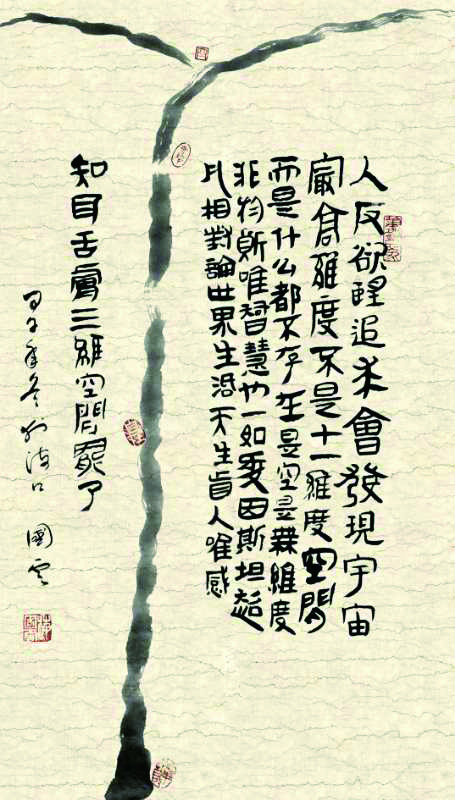 人反欲醒追求會發現宇宙
最高維度不是十一維度空間
而是什么都不存在是空是無維度
非物質唯智慧也一如愛因斯坦超
比相對論世界生活天生盲人唯感
知耳舌膚三維空間罷了
年冬於海口 國雲